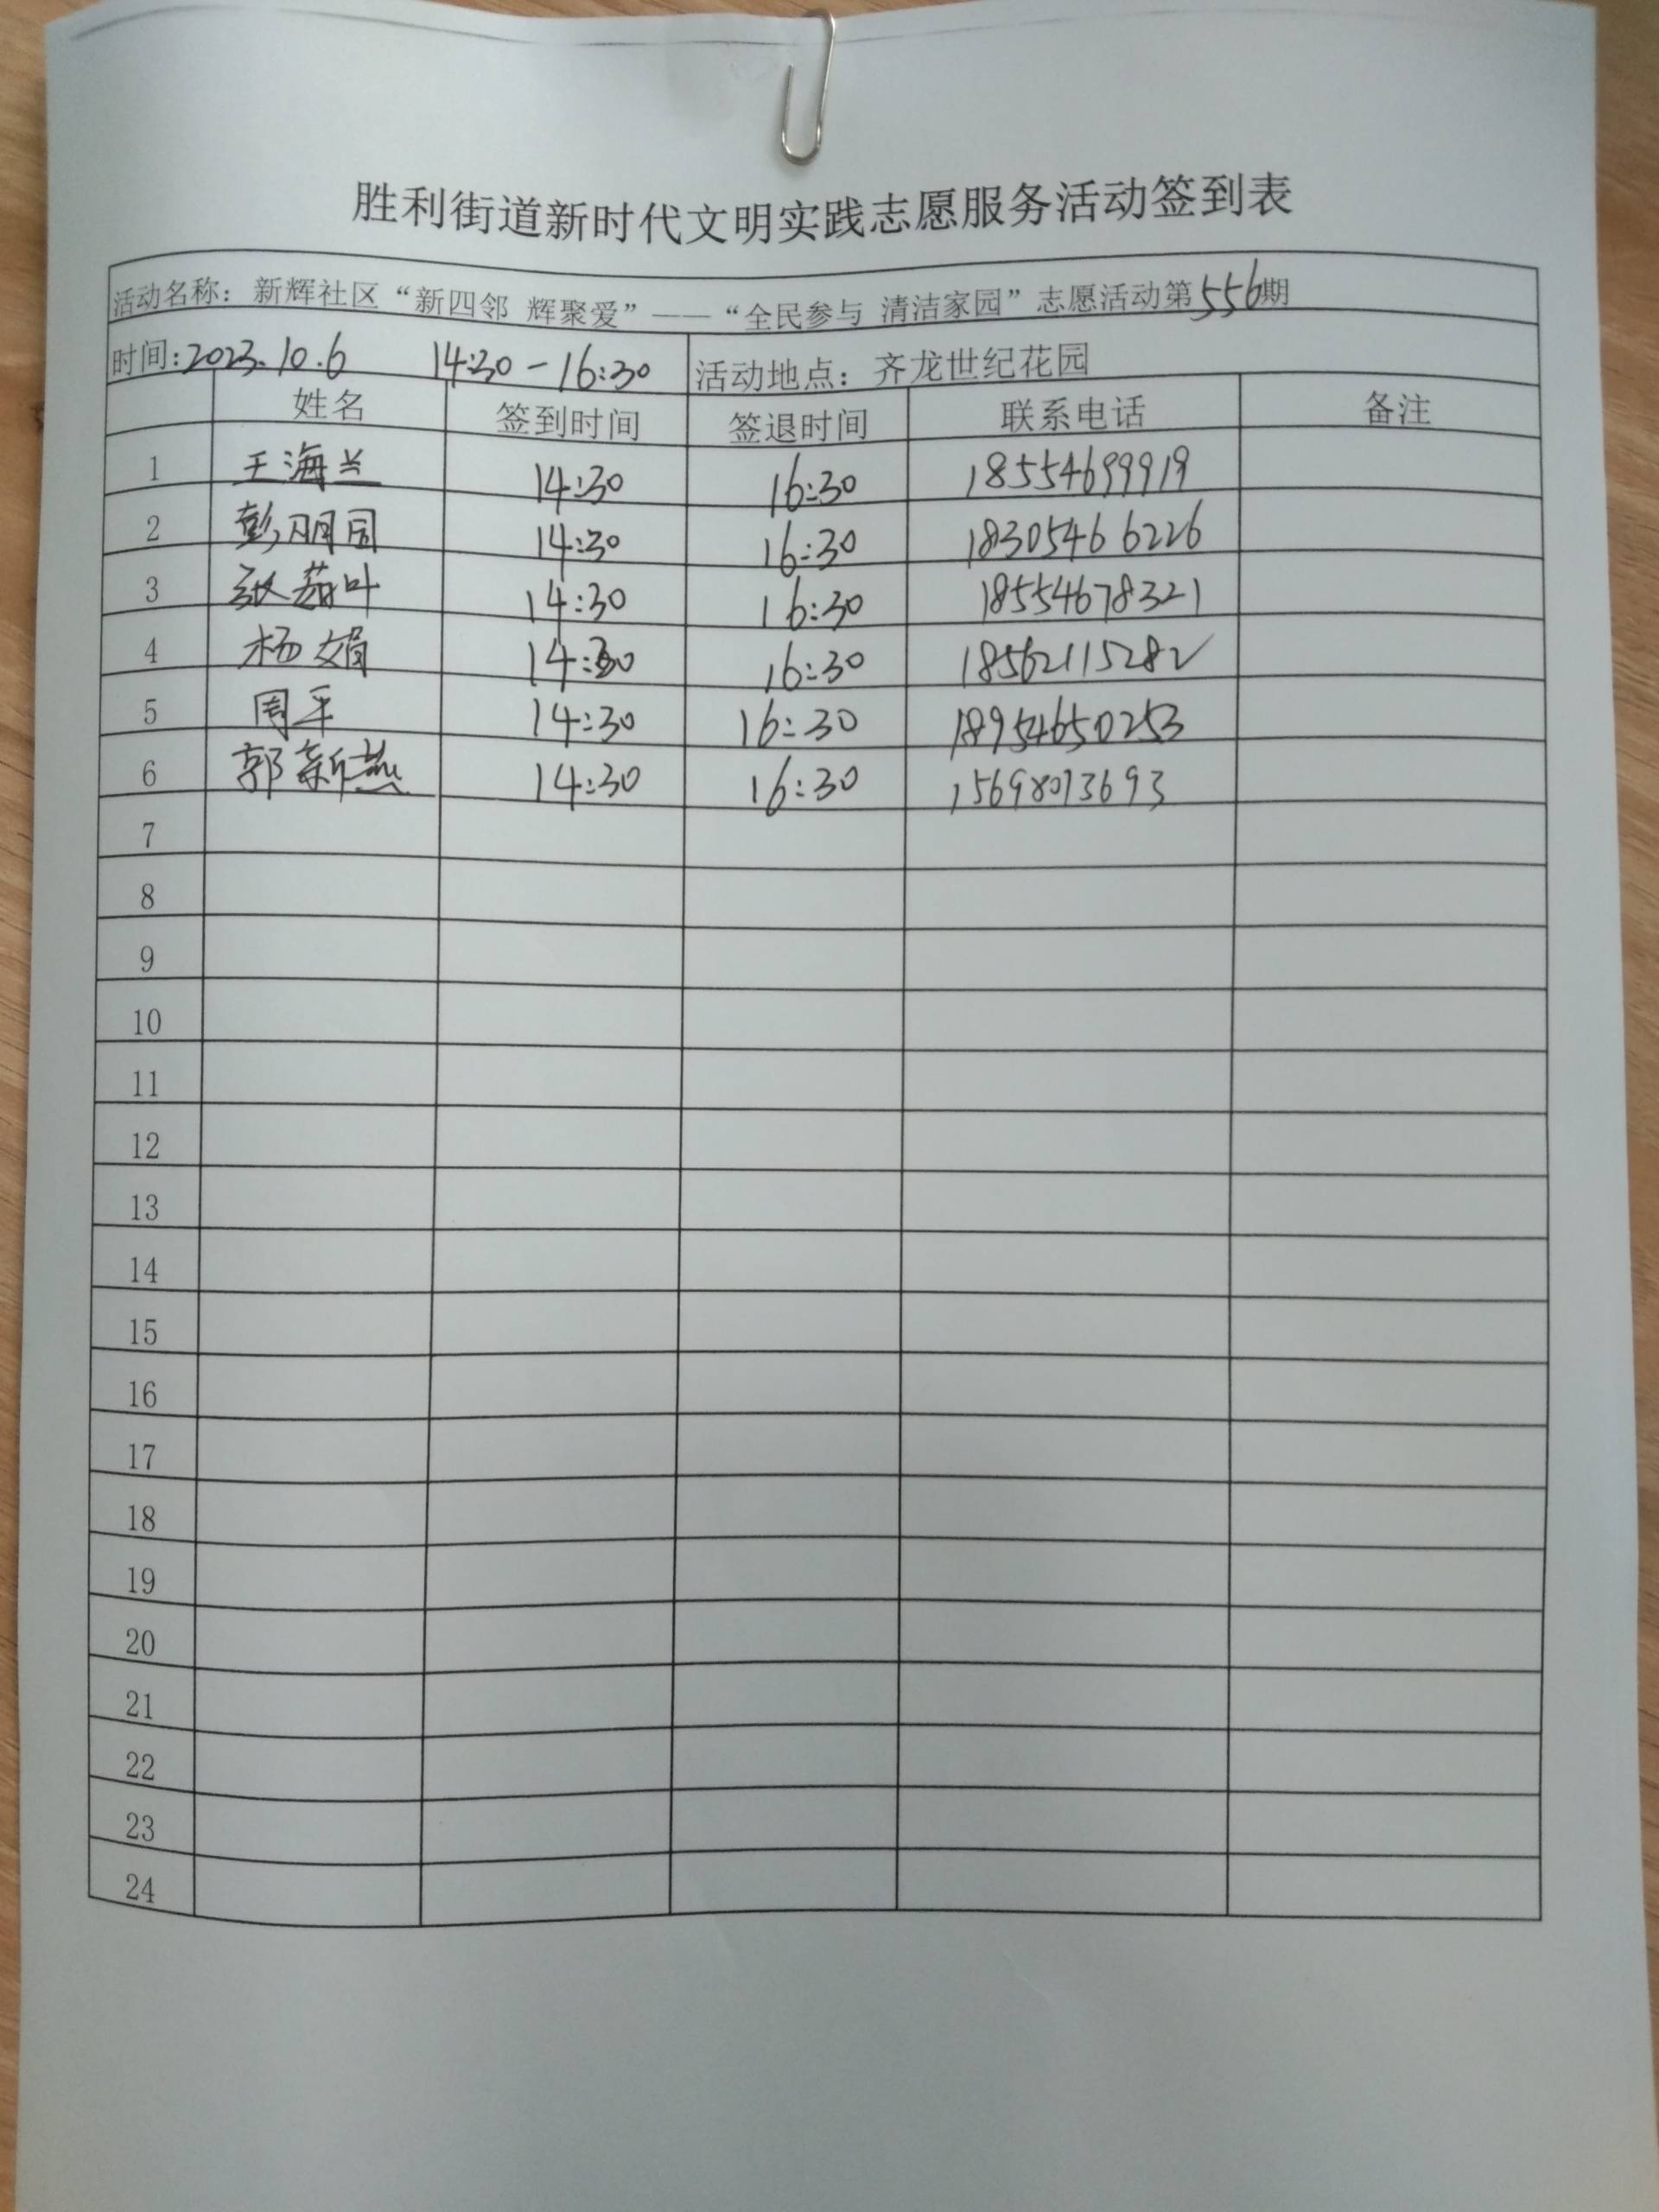 胜利街道新时代文明实践志愿服务活动签到表
活动名称：新辉社区“新四邻 辉聚爱”——“全民参与 清洁家园”志愿活动第556期
时间:2023.10.6 14:30-16:30 活动地点：齐龙世纪花园
姓名 签到时间 签退时间 联系电话 备注
1 王海兰 14:30 16:30 18554699919
2 彭丽园 14:30 16:30 18305466226
3 张荔叶 14:30 16:30 18554678321
4 杨娟 14:30 16:30 18562115282
5 周平 14:30 16:30 18954650253
6 郭新燕 14:30 16:30 15698073693
7
8
9
10
11
12
13
14
15
16
17
18
19
20
21
22
23
24